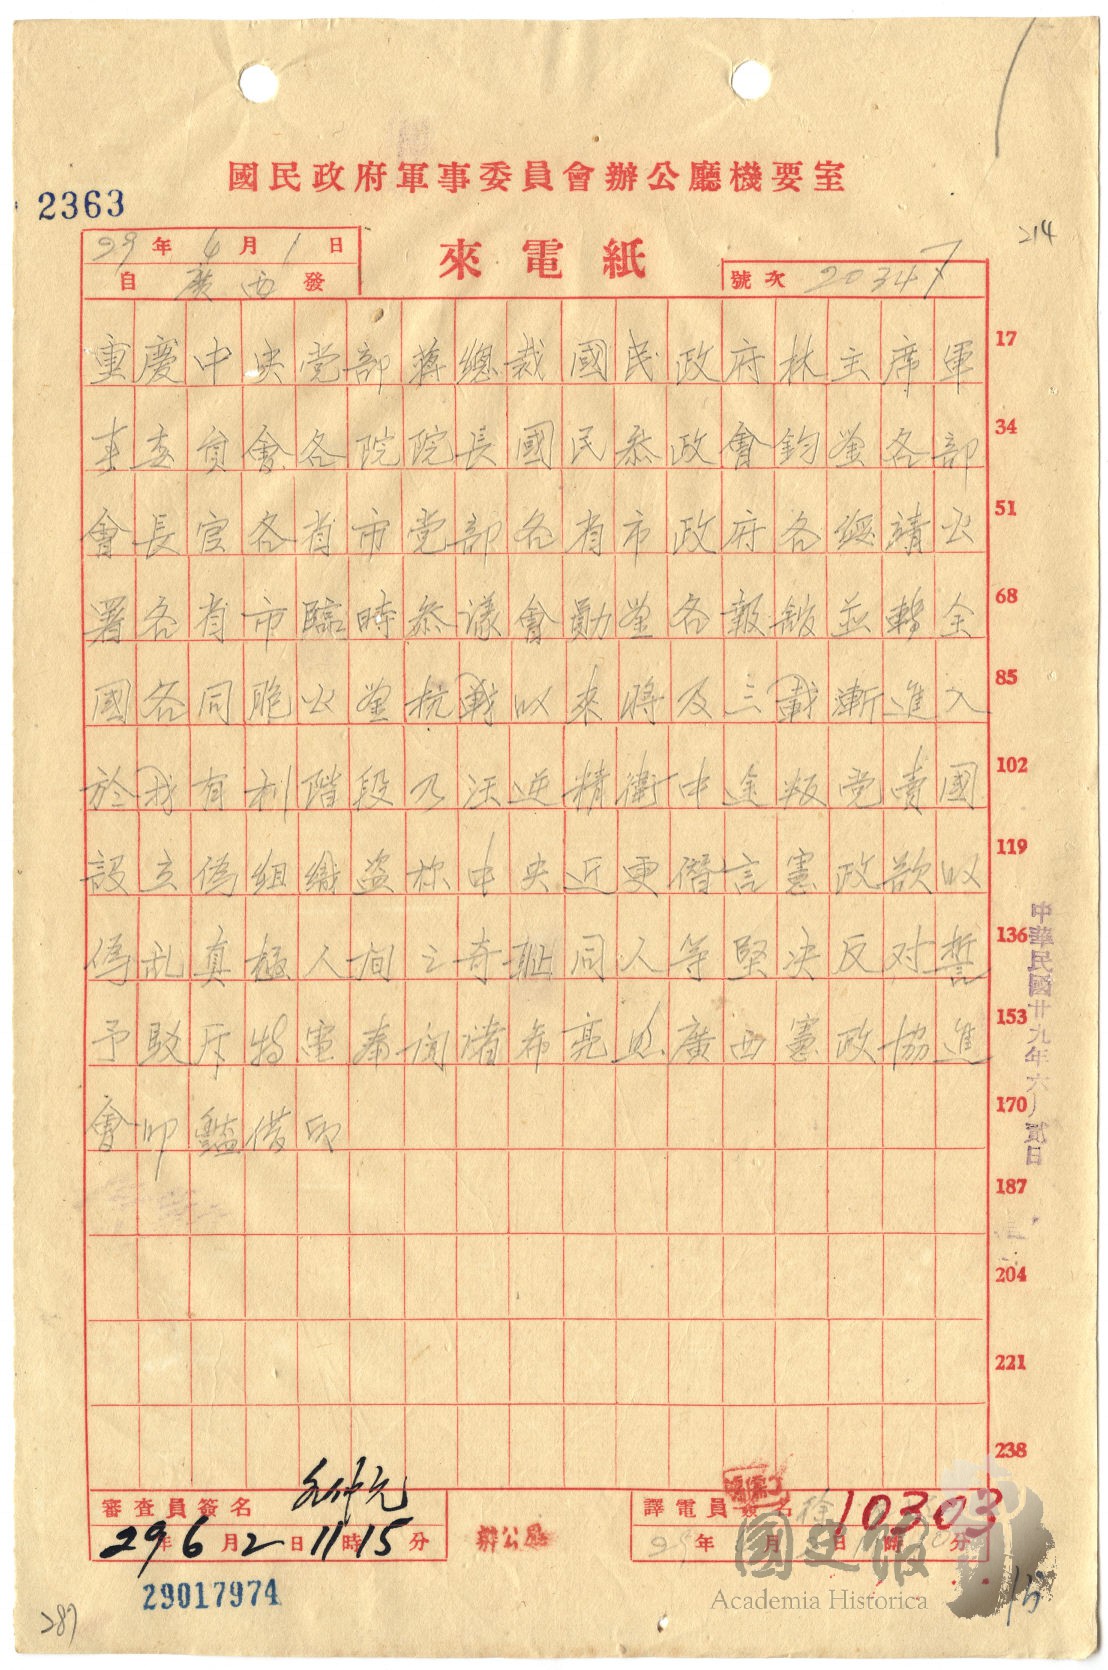 國民政府軍事委員會辦公廳機要室
2363
214
29年6月1日
來電紙
自廣西發
號次 20347
重慶中央党部蔣總裁國民政府林主席軍 17
事委員會各院院長國民参政會鈞鑒各部 34
會長官各省市党部各省市政府各綏靖公 51
署各省市臨時参議會勛鑒各報館並轉全 68
國各同胞公鑒抗戰以來將及三載漸進入 85
於我有利階段乃汪逆精衛中途叛党賣國 102
設立偽組織盜称中央近更僭言憲政欲以 119
偽乱真極人间之奇恥同人等堅决反对誓 136
予駁斥特電奉闻诸希亮照廣西憲政協進 153
會叩豔借印 170
187
204
221
238
中華民國廿九年六月貳日
審查員簽名
29年6月2日11時15分
辦公廳
譯電員簽名 徐
年 月 日 時 分
10303
29017974
287
國史館
Academia Historica